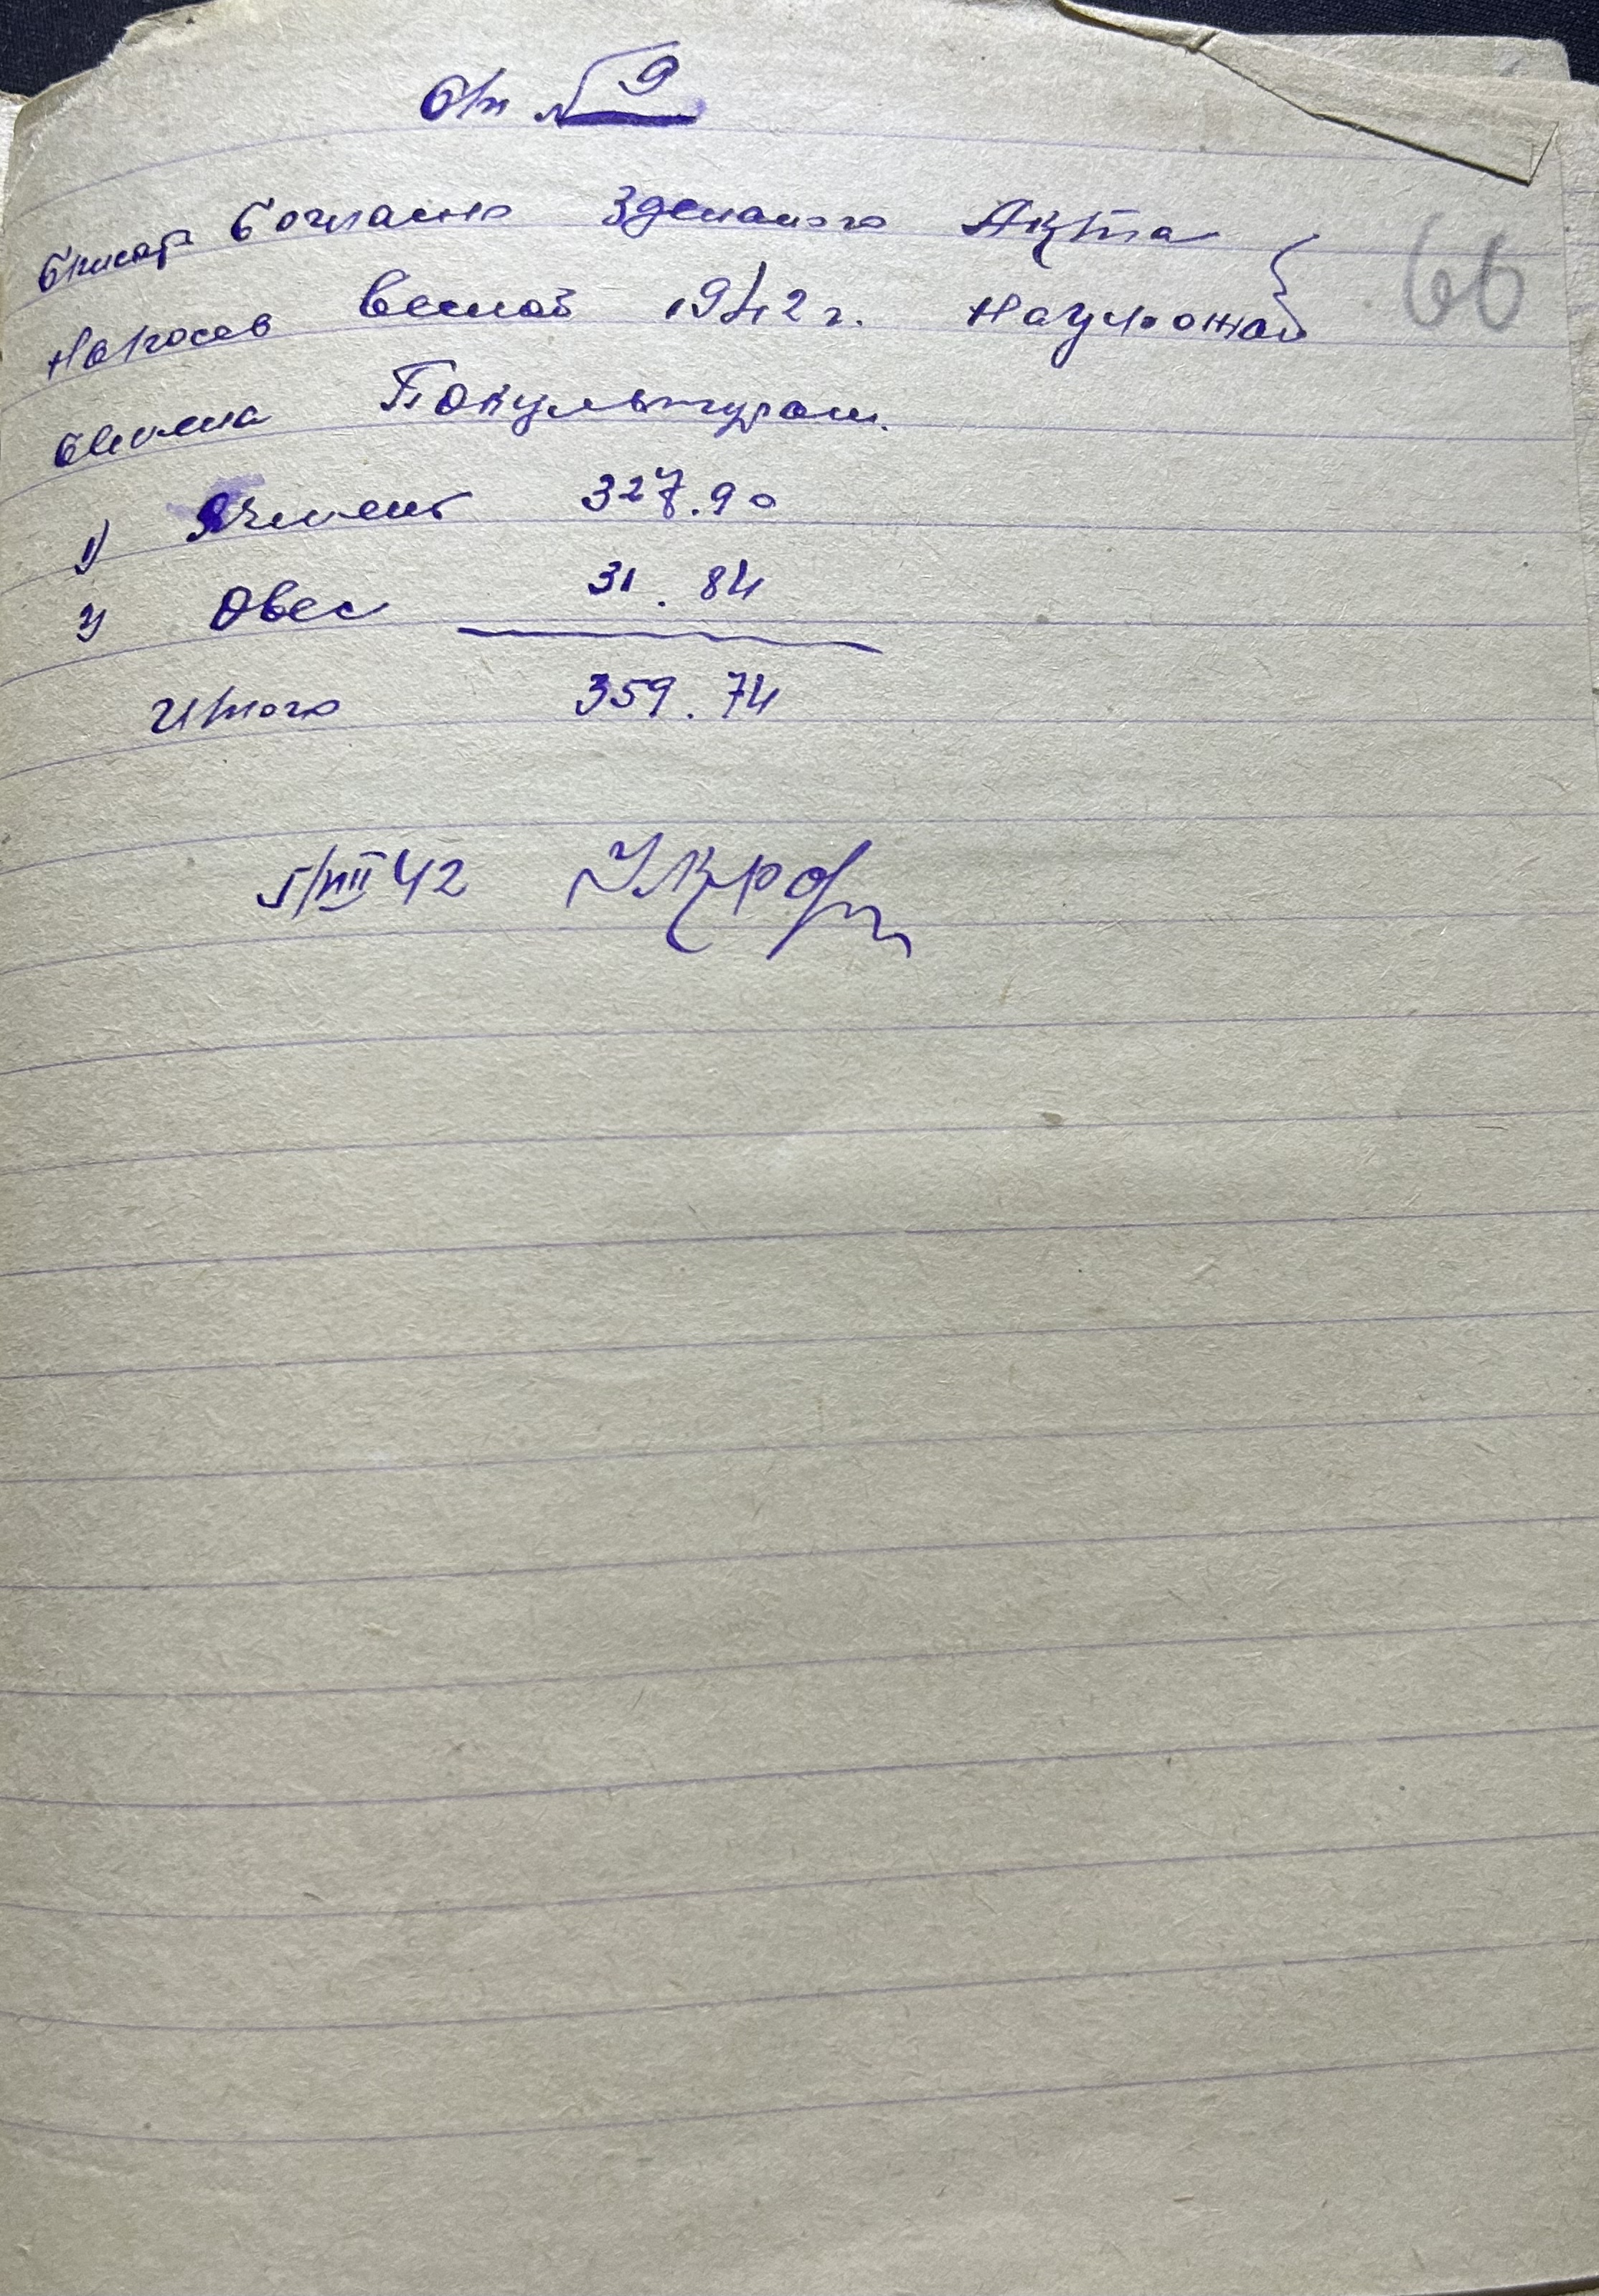 Ст № 9
Списат Согласно Зделаного Акта
66
На посев Весной 1942 г. На урожай
Семена По культурам.
1) Ячмень 327.90
2) Овес 31.84
Итого 359.74
5/VIII 42